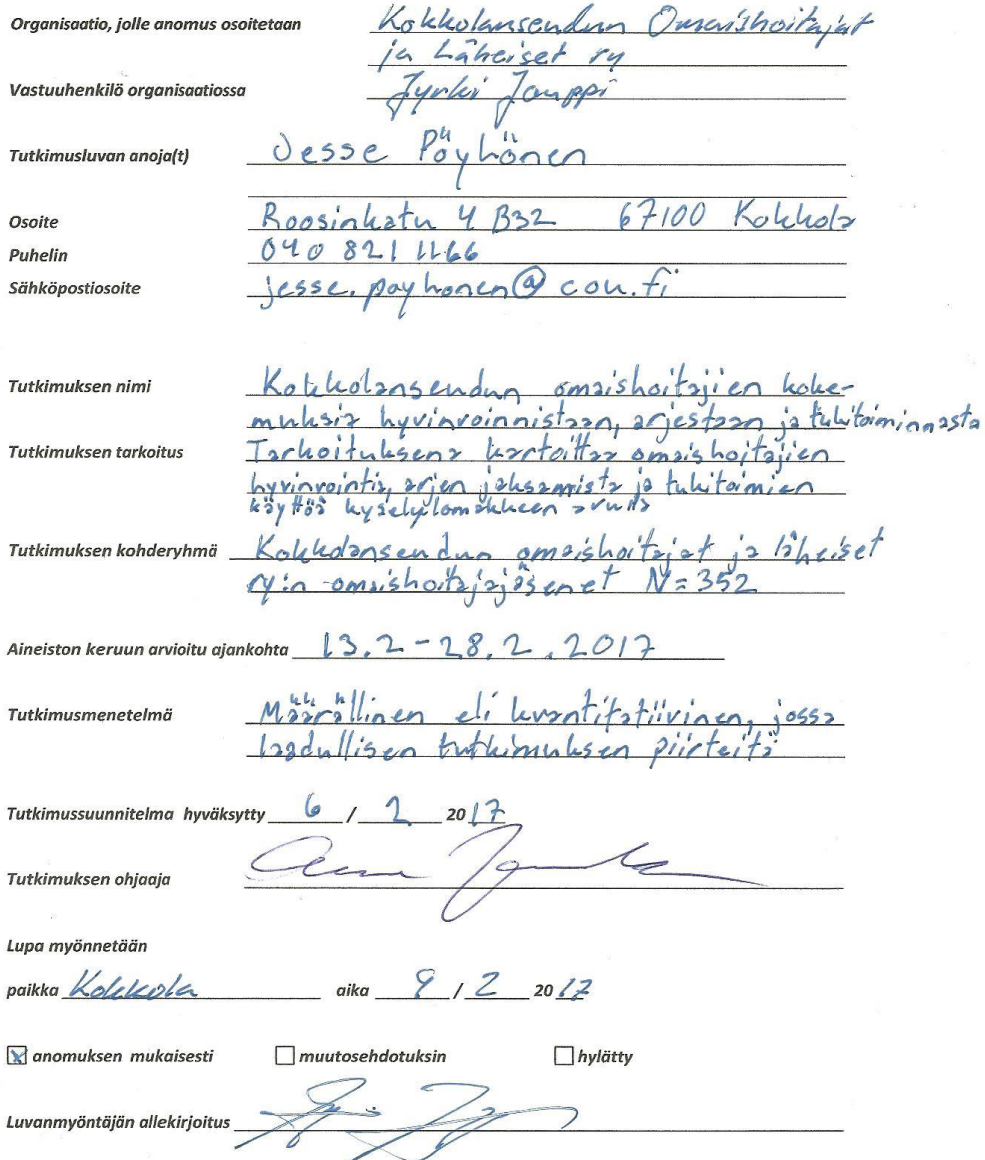 Organisaatio, jolle anomus osoitetaan Kokkolanseudun Omaishoitajat
ja Läheiset ry
Vastuuhenkilö organisaatiossa Jyrki Jauppi
Tutkimusluvan anoja(t) Jesse Pöyhönen
Osoite Roosinkatu 4 B32 67100 Kokkola
Puhelin 040 821 1166
Sähköpostiosoite jesse.poyhonen@cou.fi
Tutkimuksen nimi Kokkolanseudun omaishoitajien koke-
muksia hyvinvoinnistaan, arjestaan ja tukitoiminnasta
Tutkimuksen tarkoitus Tarkoituksena kartoittaa omaishoitajien
hyvinvointia, arjen jaksamista ja tukitoimien
käyttöä kyselylomakkeen avulla
Tutkimuksen kohderyhmä Kokkolanseudun omaishoitajat ja läheiset
ry:n omaishoitajajäsenet N=352
Aineiston keruun arvioitu ajankohta 13.2-28.2.2017
Tutkimusmenetelmä Määrällinen eli kvantitatiivinen, jossa
laadullisen tutkimuksen piirteitä
Tutkimussuunnitelma hyväksytty 6 / 2 2017
Tutkimuksen ohjaaja
Lupa myönnetään
paikka Kokkola aika 9 / 2 2017
anomuksen mukaisesti muutosehdotuksin hylätty
Luvanmyöntäjän allekirjoitus